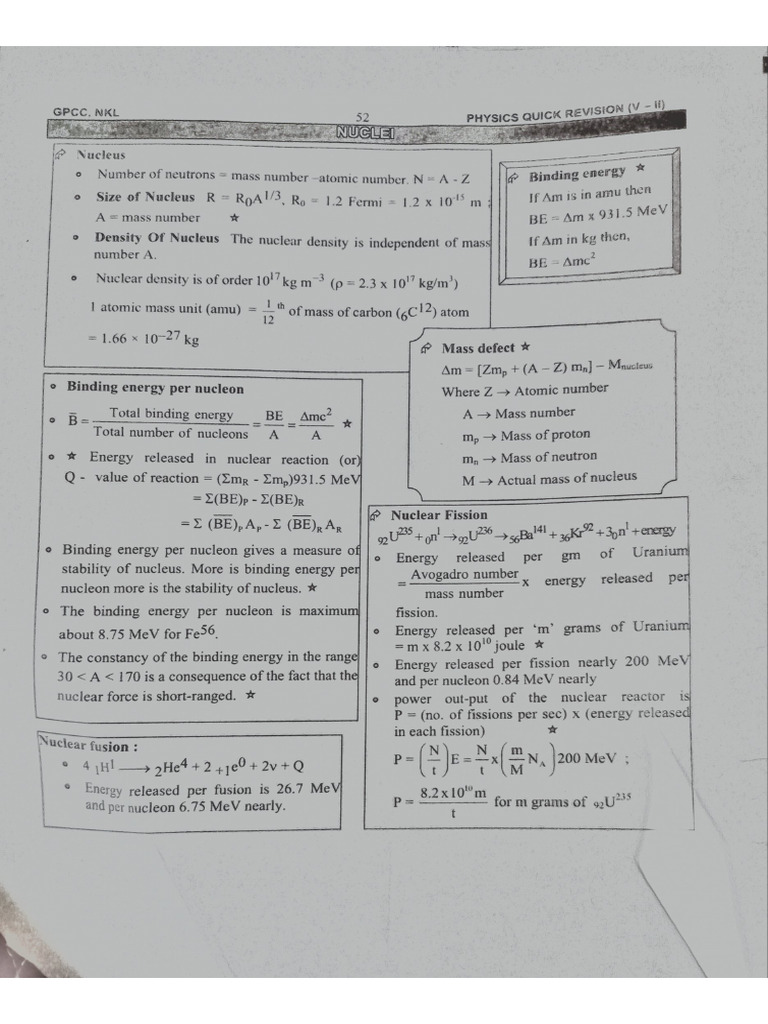 GPCC, NKL
52
PHYSICS QUICK REVISION (V – II)
NUCLEI
Nucleus
• Number of neutrons = mass number –atomic number. N = A - Z
• Size of Nucleus R = R₀A^1/3, R₀ = 1.2 Fermi = 1.2 x 10⁻¹⁵ m ;
A = mass number ☆
• Density Of Nucleus The nuclear density is independent of mass
number A.
• Nuclear density is of order 10¹⁷ kg m⁻³ (ρ = 2.3 x 10¹⁷ kg/m³)
1 atomic mass unit (amu) = 1/12 th of mass of carbon (₆C¹²) atom
= 1.66 × 10⁻²⁷ kg
Binding energy ☆
If Δm is in amu then
BE = Δm x 931.5 MeV
If Δm in kg then,
BE = Δmc²
Mass defect ☆
Δm = [Zmₚ + (A – Z) mₙ] – M_nucleus
Where Z → Atomic number
A → Mass number
mₚ → Mass of proton
mₙ → Mass of neutron
M → Actual mass of nucleus
• Binding energy per nucleon
• B̅ = Total binding energy / Total number of nucleons = BE / A = Δmc² / A ☆
• ☆ Energy released in nuclear reaction (or)
Q - value of reaction = (Σm_R - Σmₚ)931.5 MeV
= Σ(BE)_P - Σ(BE)_R
= Σ (B̅E̅)_P A_P - Σ (B̅E̅)_R A_R
• Binding energy per nucleon gives a measure of
stability of nucleus. More is binding energy per
nucleon more is the stability of nucleus. ☆
• The binding energy per nucleon is maximum
about 8.75 MeV for Fe⁵⁶.
• The constancy of the binding energy in the range
30 < A < 170 is a consequence of the fact that the
nuclear force is short-ranged. ☆
Nuclear fusion :
• 4 ₁H¹ ⟶ ₂He⁴ + 2 ₊₁e⁰ + 2ν + Q
• Energy released per fusion is 26.7 MeV
and per nucleon 6.75 MeV nearly.
Nuclear Fission
₉₂U²³⁵ + ₀n¹ → ₉₂U²³⁶ → ₅₆Ba¹⁴¹ + ₃₆Kr⁹² + 3₀n¹ + energy
• Energy released per gm of Uranium
= Avogadro number / mass number x energy released per
fission.
• Energy released per ‘m’ grams of Uranium
= m x 8.2 x 10¹⁰ joule ☆
• Energy released per fission nearly 200 MeV
and per nucleon 0.84 MeV nearly
• power out-put of the nuclear reactor is
P = (no. of fissions per sec) x (energy released
in each fission) ☆
P = (N/t) E = N/t x (m/M N_A) 200 MeV ;
P = 8.2 x 10¹⁰ m / t for m grams of ₉₂U²³⁵